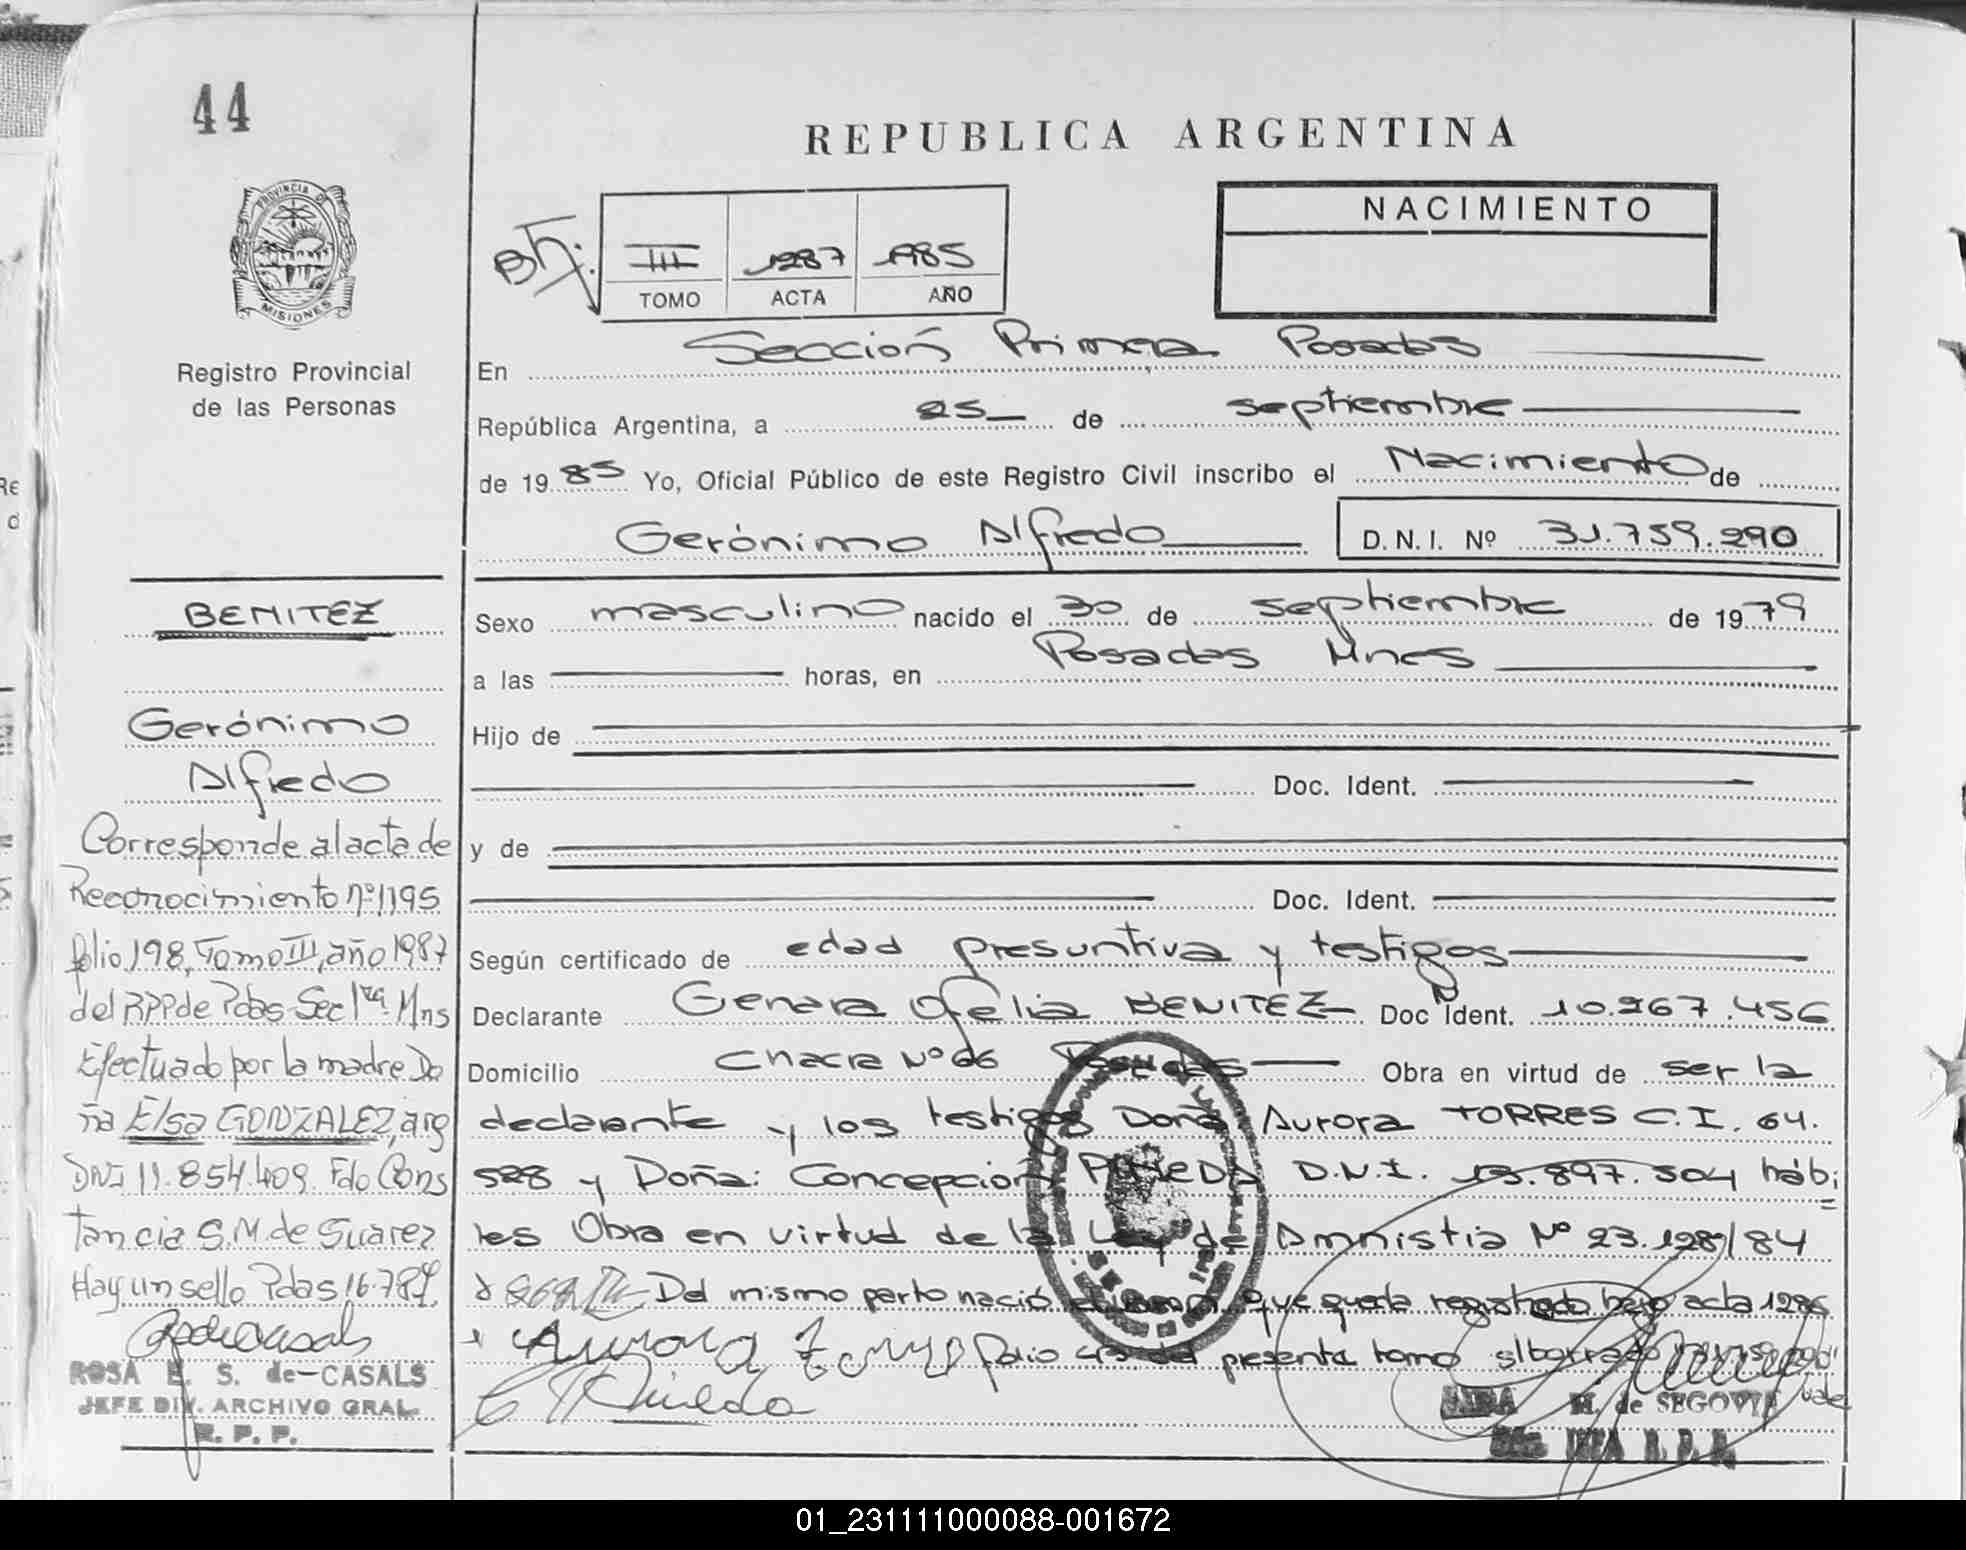 44
REPUBLICA ARGENTINA
PROVINCIA DE
MISIONES
Registro Provincial
de las Personas
III 1287 1985
TOMO ACTA AÑO
NACIMIENTO
En Sección Primera Posadas
República Argentina, a 25 de septiembre
de 1985 Yo, Oficial Público de este Registro Civil inscribo el Nacimiento de
Gerónimo Alfredo D.N.I. Nº 31.759.290
Sexo masculino nacido el 30 de septiembre de 1979
a las horas, en Posadas Mnes
Hijo de
Doc. Ident.
y de
Doc. Ident.
Según certificado de edad presuntiva y testigos
Declarante Genara Ofelia BENITEZ Doc Ident. 10.267.456
Domicilio Chacra Nº 66 Posadas Obra en virtud de ser la
declarante y los testigos Doña Aurora TORRES C.I. 64.
528 y Doña: Concepción D.N.I. 13.897.504 hábi
les Obra en virtud de la Ley de Amnistia Nº 23.128/84
Del mismo parto nació que queda registrado bajo acta 1286
folio 43 del presente tomo s/borrado vale
BENITEZ
Gerónimo
Alfredo
Corresponde al acta de
Reconocimiento nº 1195
folio 198, Tomo III, año 1987
del RPP de Pdas Sec 1ra. Mns
Efectuado por la madre Do
ña Elsa GONZALEZ, arg
DNI 11.854.409. Fdo Cons
tancia S.M. de Suarez
Hay un sello Pdas 16.7.87.
ROSA E. S. de-CASALS
JEFE DIV. ARCHIVO GRAL.
R. P. P.
M. de SEGOVIA
01_231111000088-001672